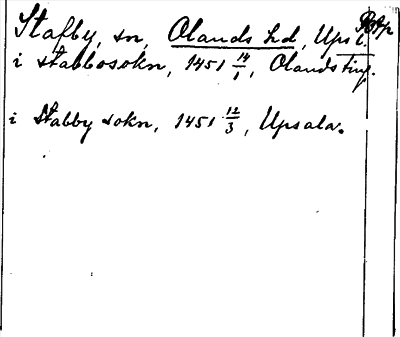 Stafby, sn, Olands hd, Ups l.
i stabbosokn, 1451 14/1, Olands ting.
i Stabby sokn, 1451 12/3, Upsala.